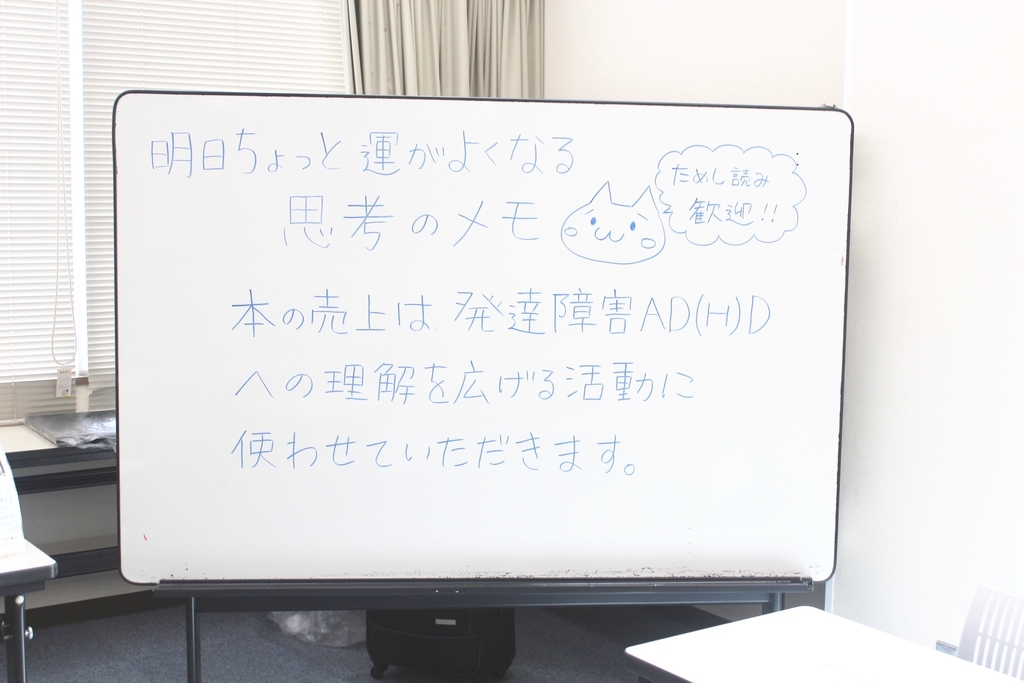 明日ちょっと運がよくなる
思考のメモ
ためし読み
歓迎!!
本の売上は発達障害AD(H)D
への理解を広げる活動に
使わせていただきます。